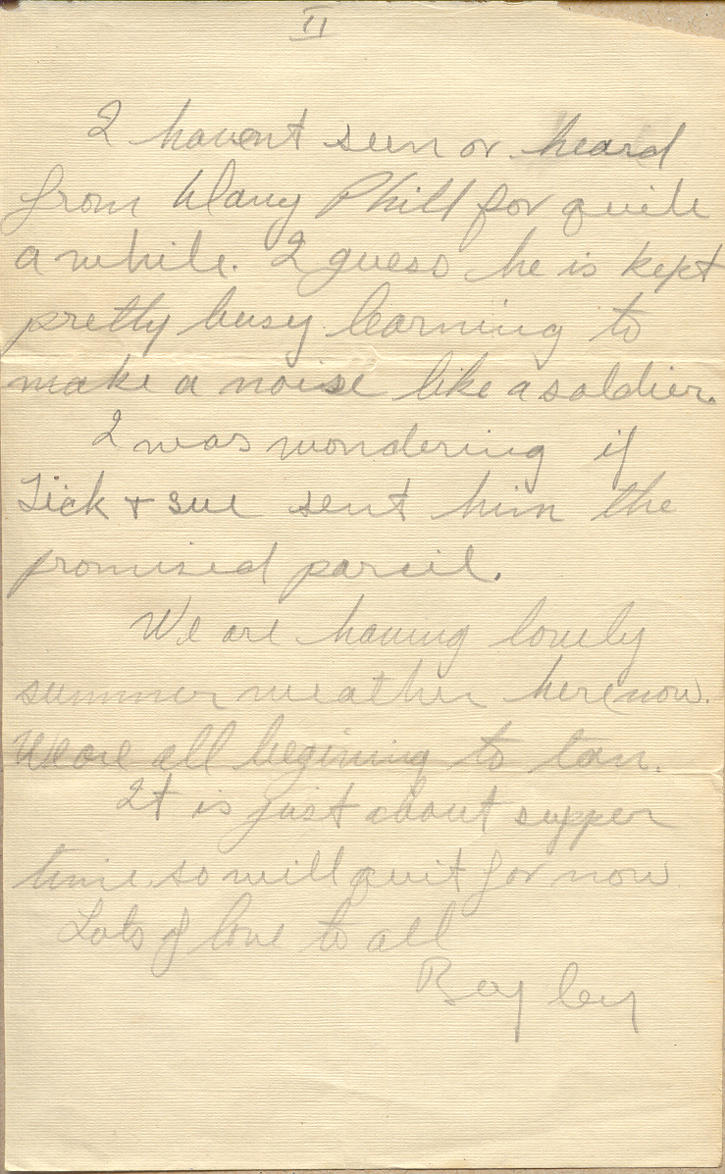 II
I havent seen or heard
from Phill for quite
a while. I guess he is kept
pretty busy learning to
make a noise like a soldier.
I was wondering if
Tick + Sue sent him the
promised parcil.
We are having lovely
summer weather here now.
We are all begining to tan.
It is just about supper
time so will quit for now
Lots of love to all
Bayley